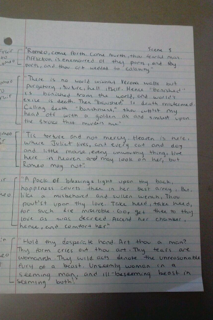 Romeo 3
"Romeo, come forth, come forth, thou fearful man.
Affliction is enamored of thy parts, and thou
art wedded to calamity."
"There is no world without Verona walls but
purgatory, torture, hell itself. Hence "banished"
is banished from the world, and world's
exile is death. Then "banished" is death mistermed.
Calling death "banishment," thou cut'st my
head off with a golden ax and smilest upon
the stroke that murders me."
'Tis torture and not mercy. Heaven is here,
where Juliet lives, and every cat and dog
and little mouse, every unworthy thing, live
here in heaven and may look on her, but
Romeo may not."
"A pack of blessings light upon thy back,
happiness courts thee in her best array. But,
like a and sullen wench, thou
thy love. Take heed, take heed,
for such die miserable. Go, get thee to thy
love as was decreed. Ascend her chamber,
hence, and comfort her."
"Hold thy desperate hand. Art thou a man?
Thy form cries out thou art. Thy tears are
womanish. Thy wild acts denote the unreasonable
fury of a beast. Unseemly woman in a
seeming man, and ill-beseeming beast in
seeming both,